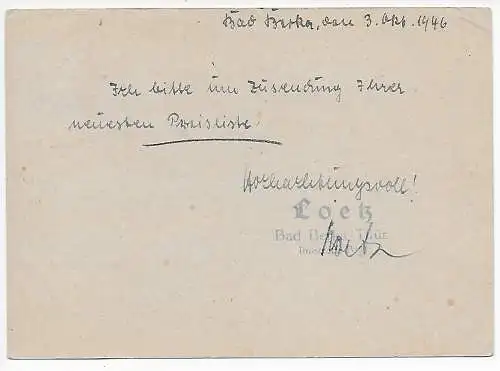 Bad Berka, den 3. Okt. 1946
Ich bitte um Zusendung Ihrer
neuesten Preisliste!
Hochachtungsvoll!
Loetz
Bad Berka/Thür.
Loetz